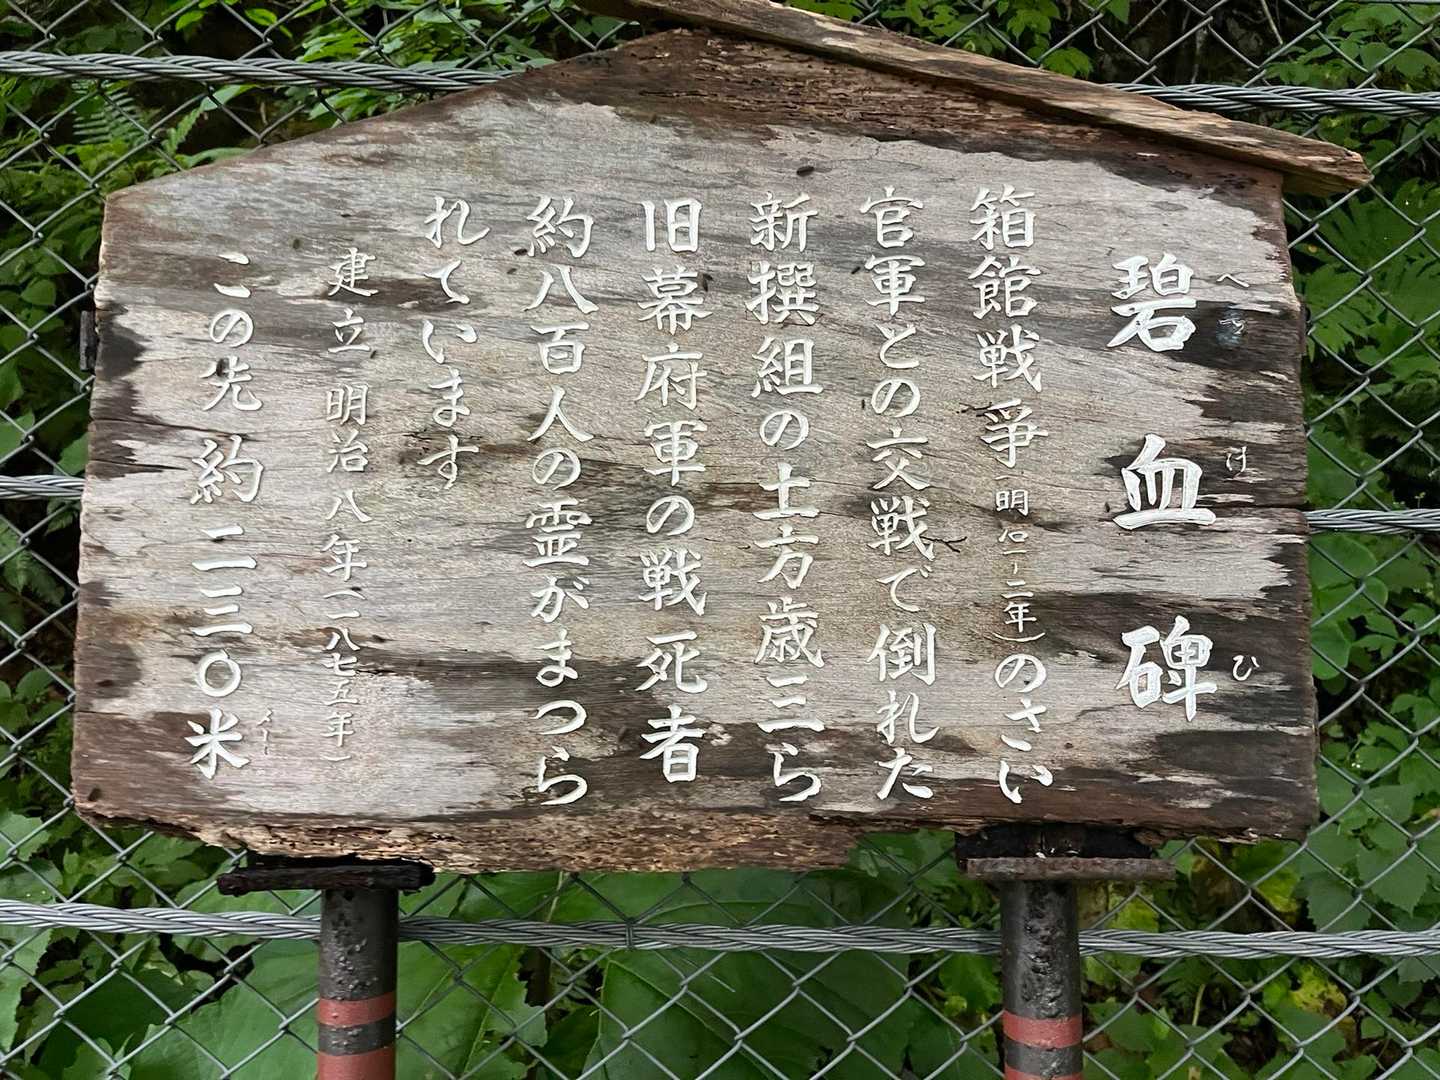 碧血碑
へきけつひ
箱館戦争(明治一~二年)のさい
官軍との交戦で倒れた
新撰組の土方歳三ら
旧幕府軍の戦死者
約八百人の霊がまつら
れています
建立 明治八年(一八七五年)
この先約二三〇米
メートル